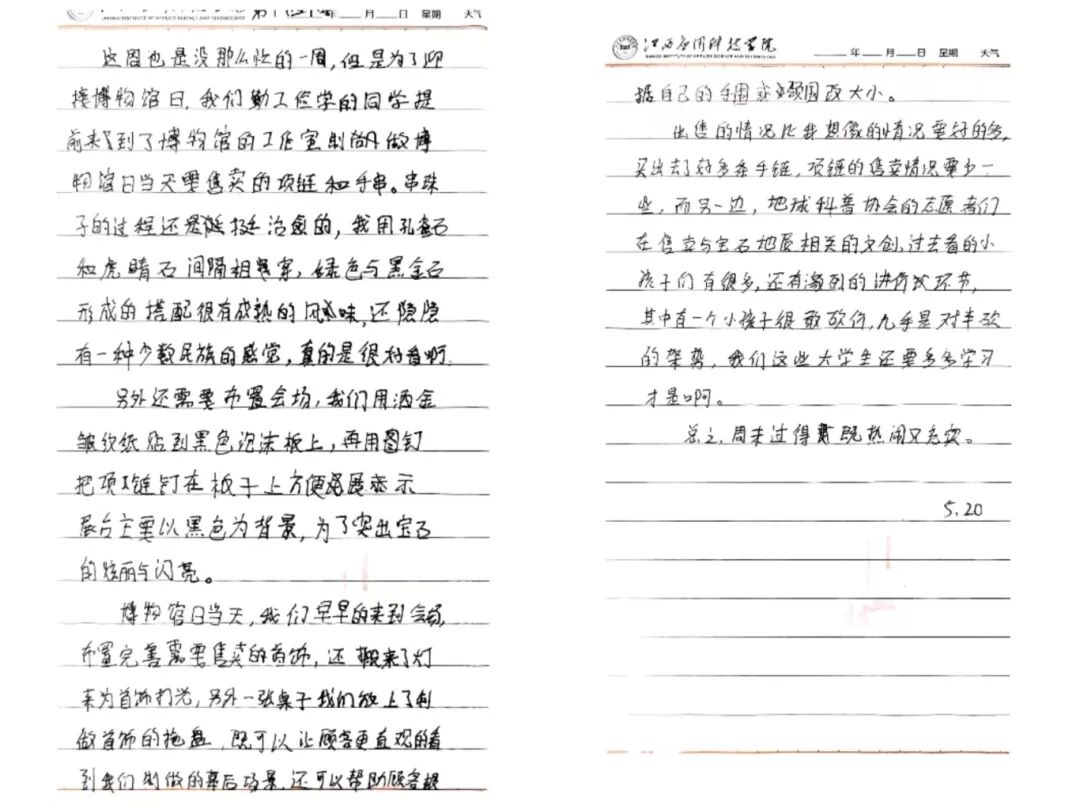 年 月 日 星期 天气
这周也是没那么忙的一周，但是为了迎
接博物馆日，我们勤工俭学的同学提
前来到了博物馆的工作室制作博
物馆日当天要售卖的项链和手串。串珠
子的过程还是挺治愈的，我用孔雀石
和虎睛石间隔相串，绿色与黑金石
形成的搭配很有成熟的风味，还隐隐
有一种少数民族的感觉，真的是很好看啊。
另外还需要布置会场，我们用洒金
皱纹纸贴到黑色泡沫板上，再用图钉
把项链钉在板子上方便展示
展台主要以黑色为背景，为了突出宝石
的炫丽与闪亮。
博物馆日当天，我们早早的来到会场，
布置完善需要售卖的首饰，还搬来了灯
来为首饰打光，另外一张桌子我们放上了制
做首饰的拖盘，既可以让顾客更直观的看
到我们制做的幕后场景，还可以帮助顾客根
江西应用科技学院
JIANGXI INSTITUTE OF APPLIED SCIENCE AND TECHNOLOGY
年 月 日 星期 天气
据自己的手围或颈围改大小。
出售的情况比我想像的情况要好的多，
买出去了好多条手链，项链的售卖情况要少一
些，而另一边，地球科普协会的志愿者们
在售卖与宝石地质相关的文创，过去看的小
孩子们有很多，还有激烈的讲价环节，
其中有一个小孩子很敢砍价，几乎是对半砍
的架势，我们这些大学生还要多多学习
才是啊。
总之，周末过得既热闹又充实。
5.20